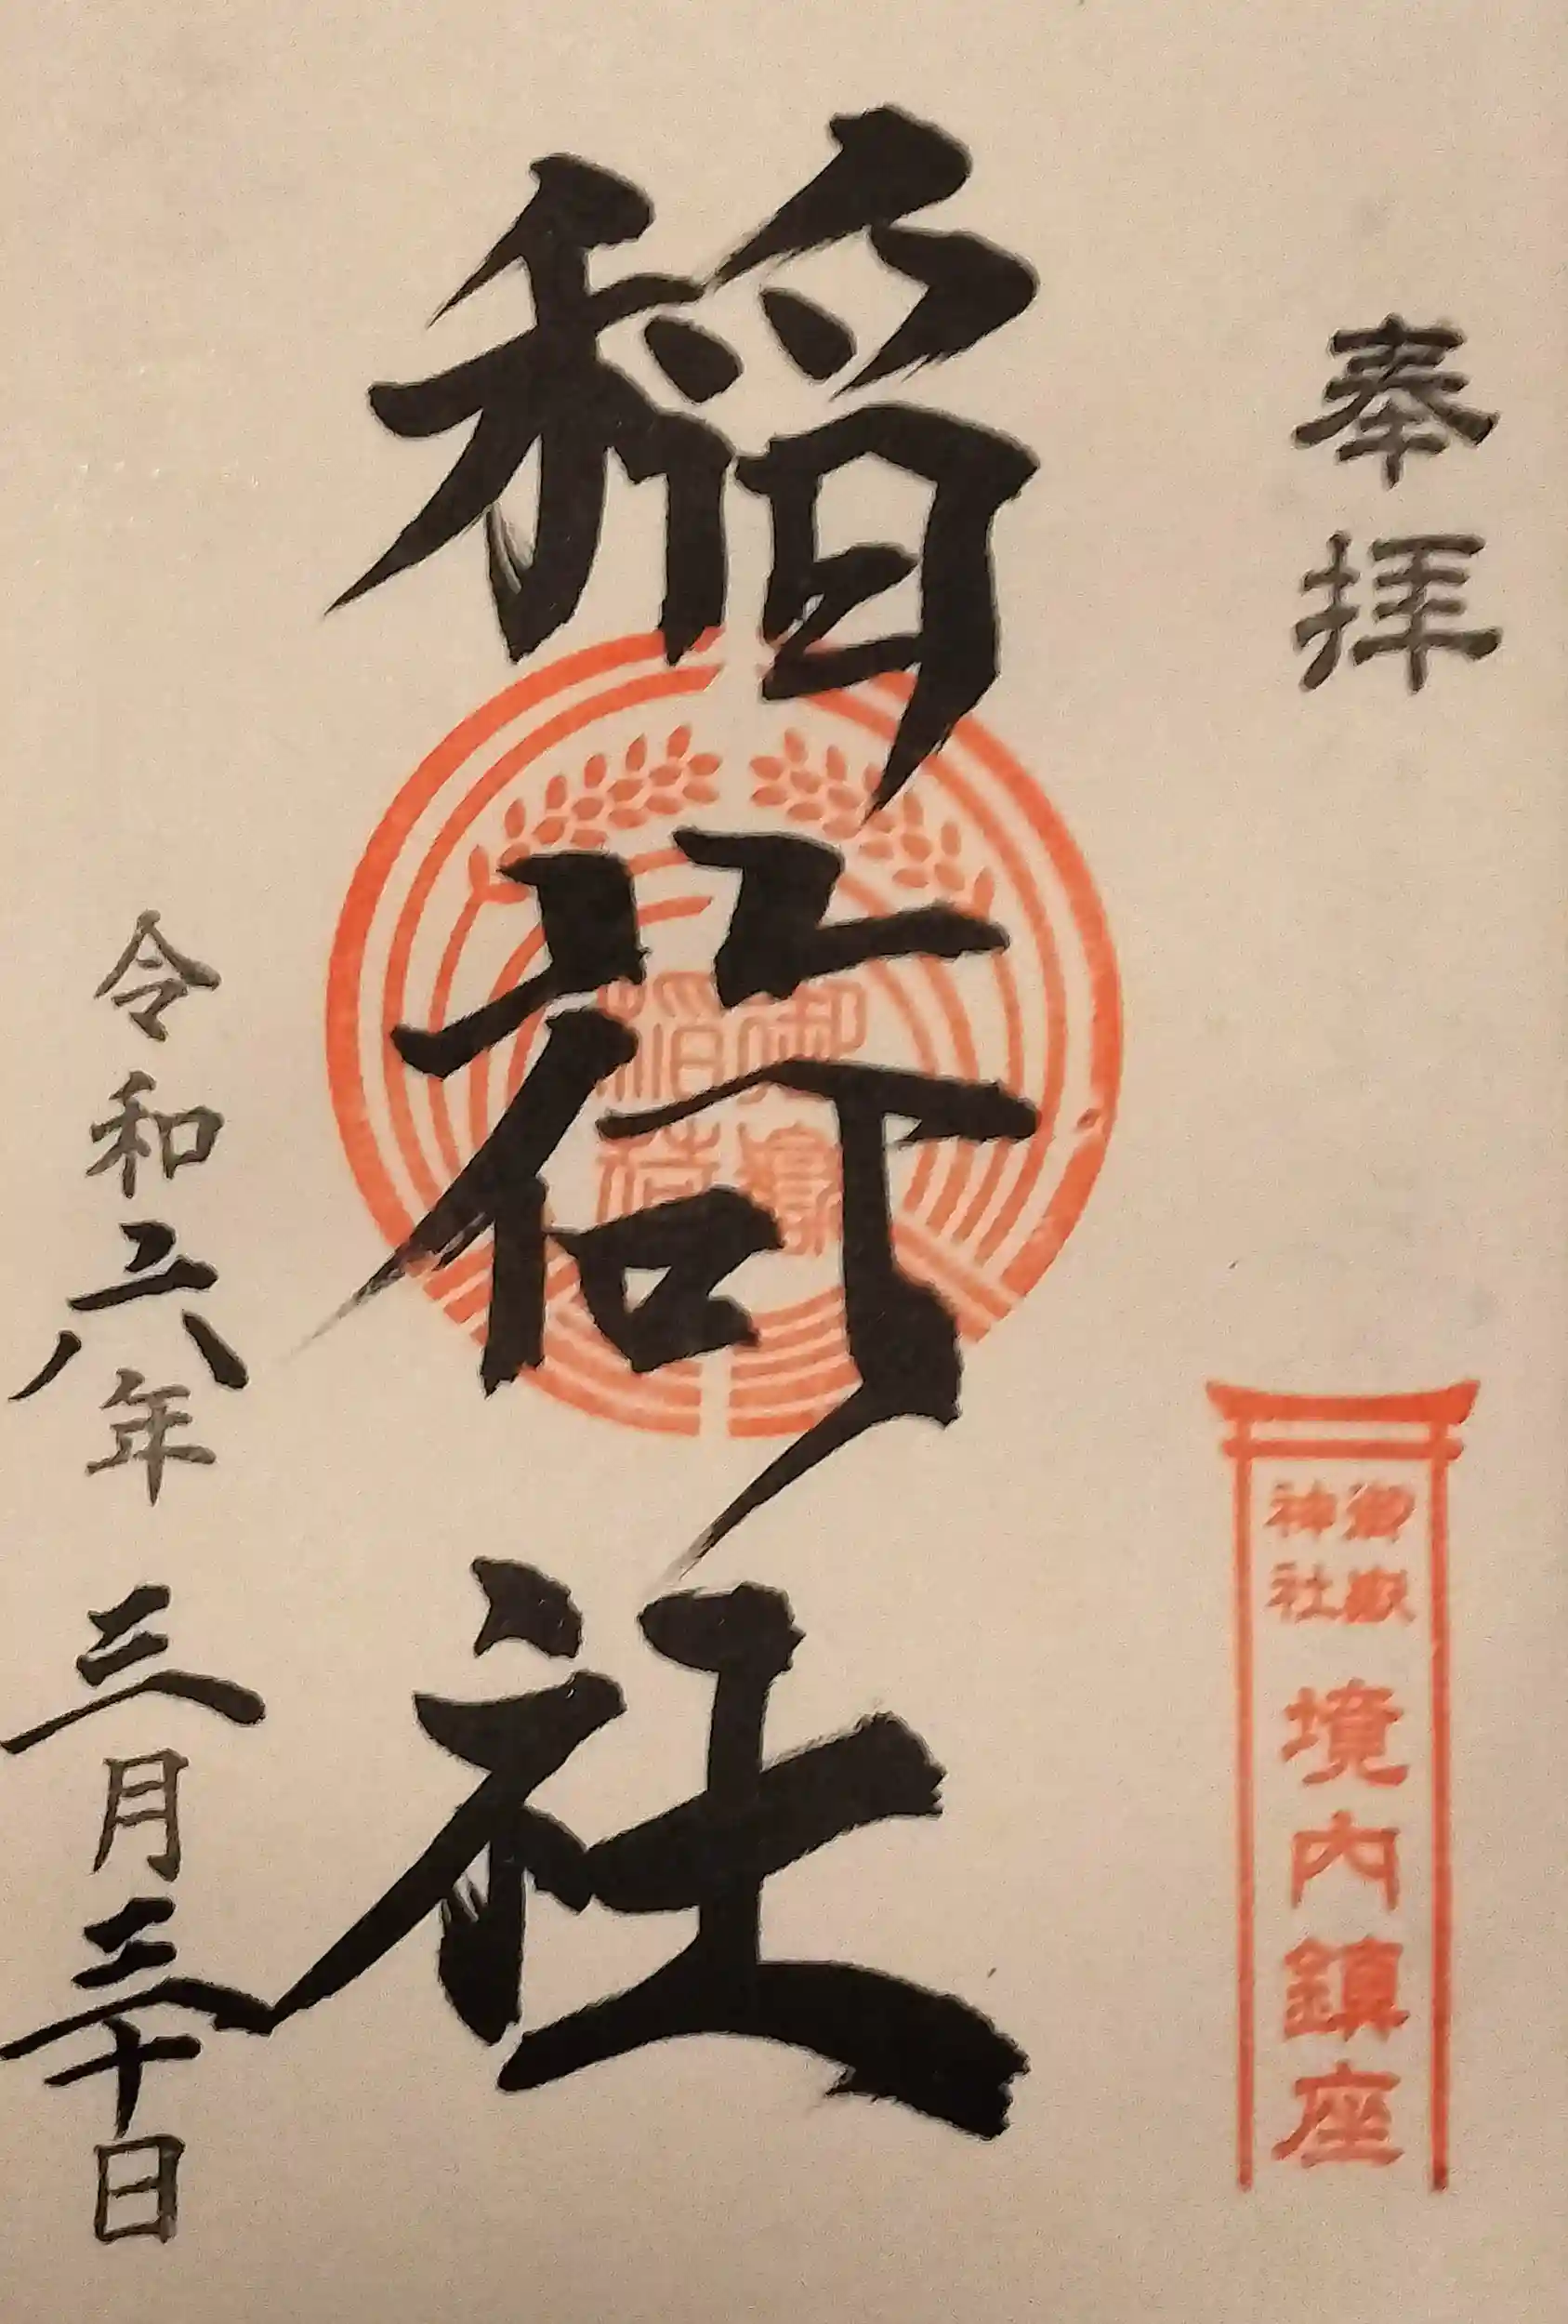 奉拝
御嶽
神社
境内鎮座
稲荷社
御嶽
稲荷
令和六年三月三十日